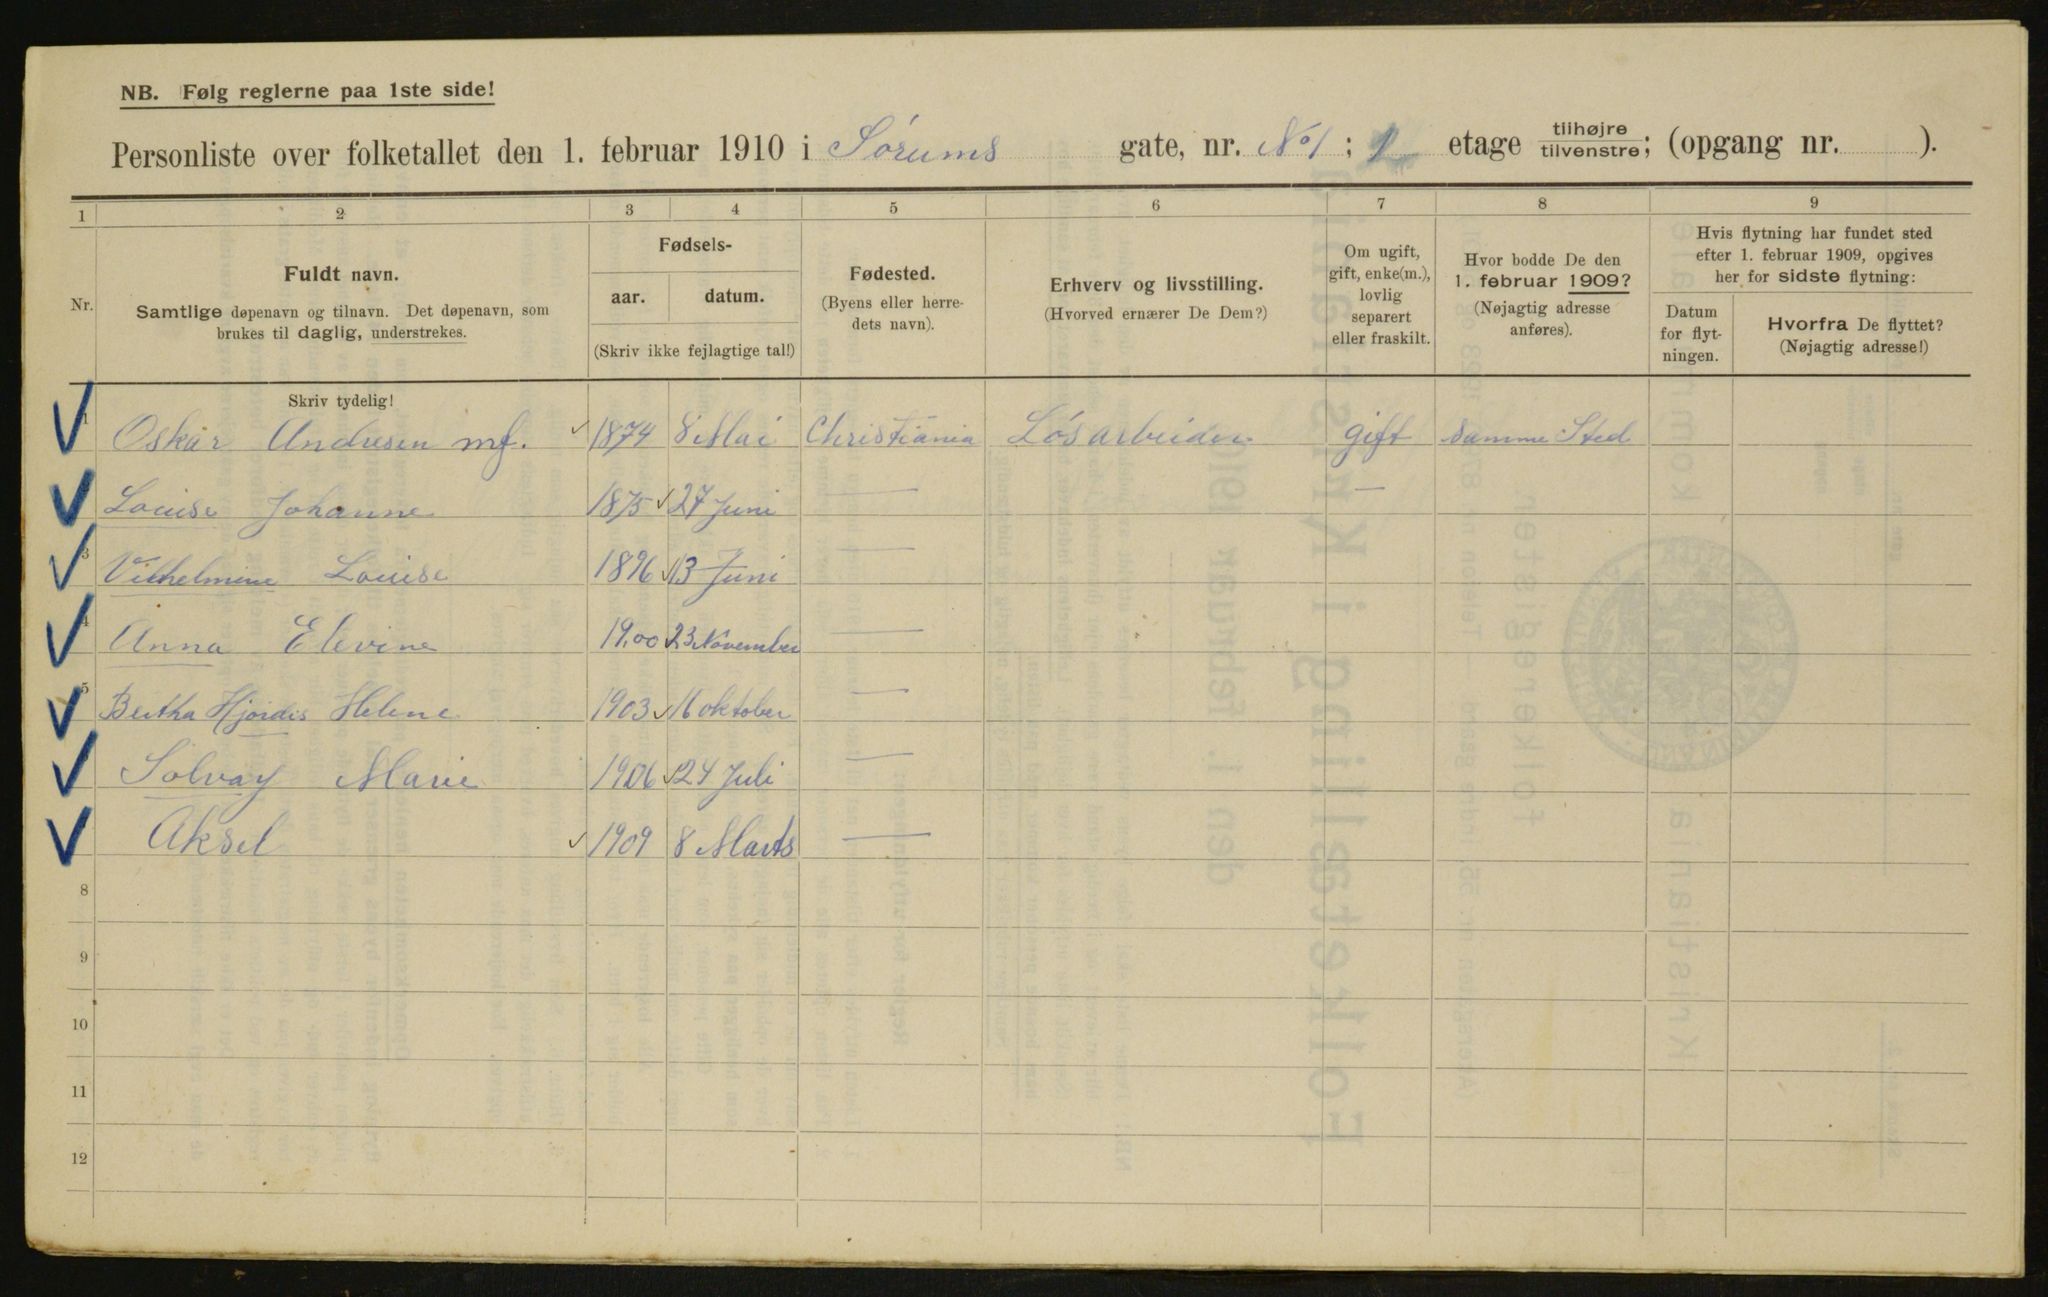 NB. Følg reglerne paa 1ste side!
Personliste over folketallet den 1. februar 1910 i Sørums gate, nr. No 1; 1 etage tilhøjre tilvenstre; (opgang nr. ).
1 2 3 4 5 6 7 8 9
Nr.
Fuldt navn.
Samtlige døpenavn og tilnavn. Det døpenavn, som
brukes til daglig, understrekes.
Fødsels-
aar. datum.
(Skriv ikke fejlagtige tal!)
Fødested.
(Byens eller herre-
dets navn).
Erhverv og livsstilling.
(Hvorved ernærer De Dem?)
Om ugift,
gift, enke(m.),
lovlig
separert
eller fraskilt.
Hvor bodde De den
1. februar 1909?
(Nøjagtig adresse
anføres).
Hvis flytning har fundet sted
efter 1. februar 1909, opgives
her for sidste flytning:
Datum
for flyt-
ningen.
Hvorfra De flyttet?
(Nøjagtig adresse!)
Skriv tydelig!
1 Oskar Andresen mf. 1874 8 Mai Christiania Løsarbeider gift Samme Sted
Louise Johanne 1875 27 Juni — —
3 Vilhelmine Louise 1896 13 Juni
4 Anna Elevine 19.00 23 November —
5 Bertha Hjørdis Helene 1903 16 oktober —
Solvay Marie 1906 24 Juli —
Aksel 1909 8 Marts —
8
9
10
11
12